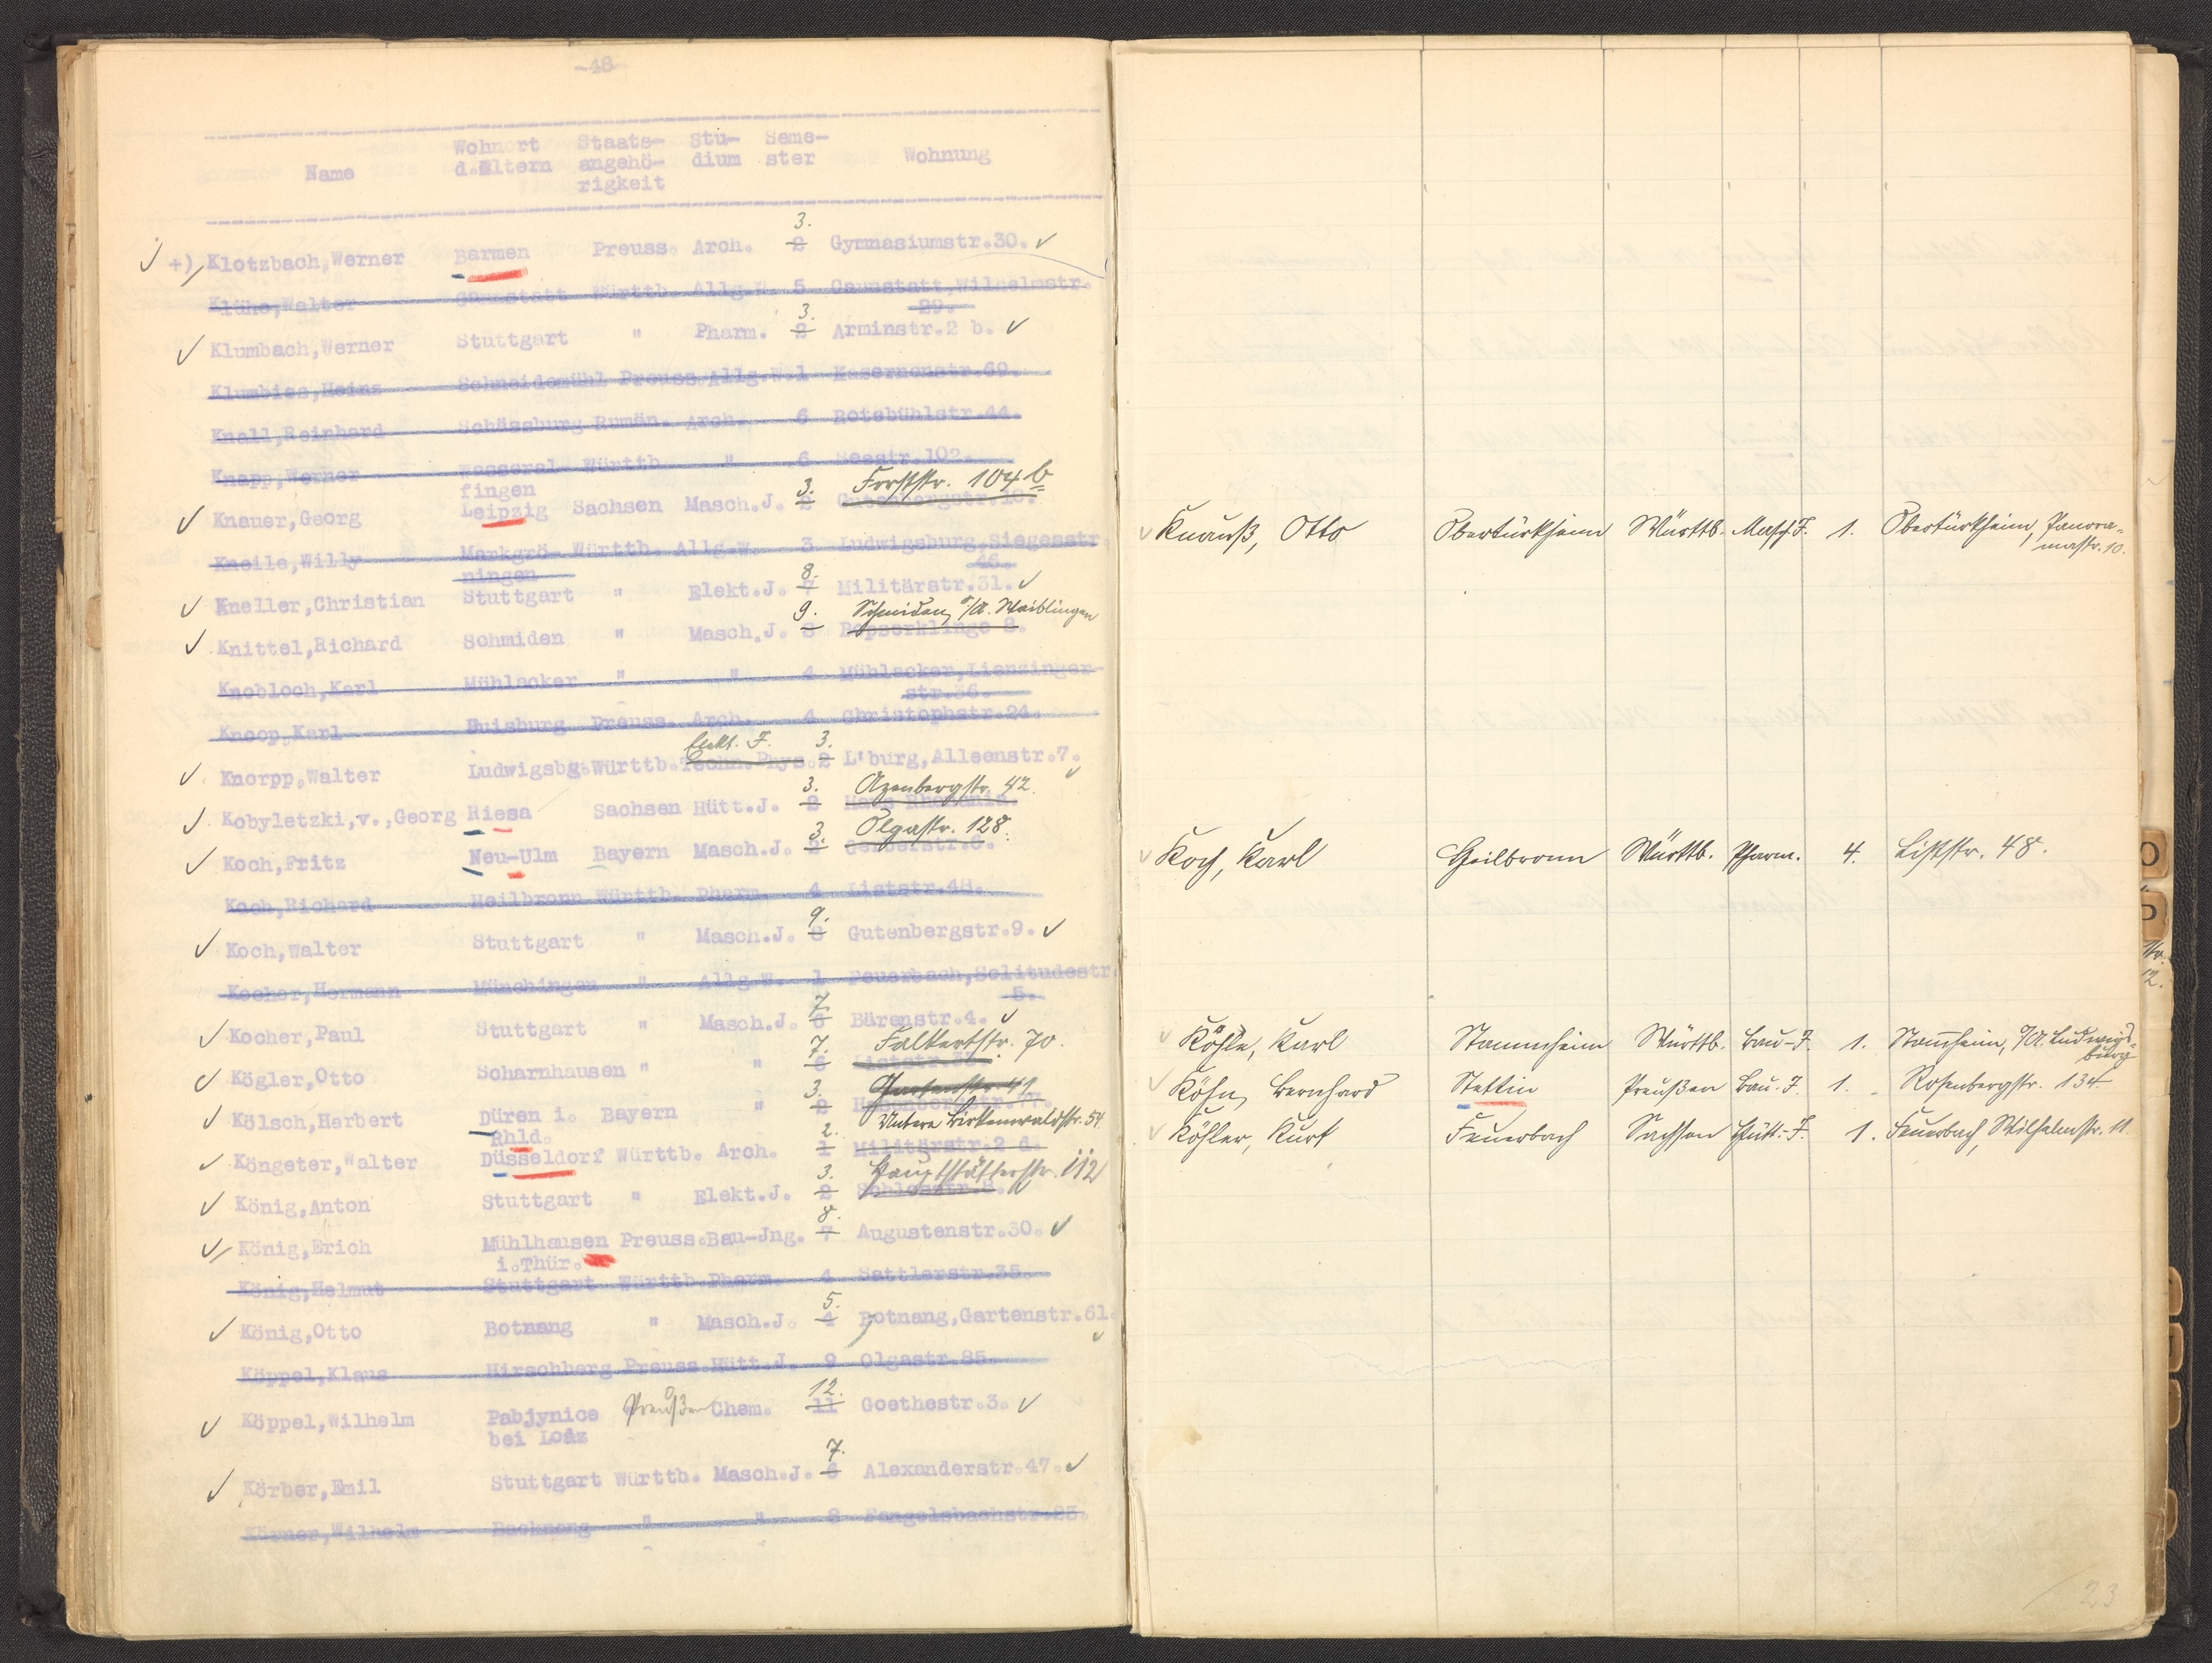 -48-
Name Wohnort d.Eltern Staats- angehö- rigkeit Stu- dium Seme- ster Wohnung
3.
+) Klotzbach,Werner Barmen Preuss. Arch. 2 Gymnasiumstr.30.
Klöhe,Walter Cannstatt Württb. Allg.W. 5 Cannstatt,Wilhelmstr.
29.
3.
Klumbach,Werner Stuttgart " Pharm. 2 Arminstr.2 b.
Klumbies,Heinz Schneidemühl Preuss.Allg.W.1 Kasernenstr.69.
Knall,Reinhard Schässburg Rumän. Arch. 6 Rotebühlstr.44.
Knapp,Werner Wasseral- Württb. " 6 Seestr.102.
fingen
3. Forststr. 104 b
Knauer,Georg Leipzig Sachsen Masch.J. 2 Gutenbergstr.10.
Kneile,Willy Markgrö- Württb. Allg.W. 3 Ludwigsburg,Siegesstr.
ningen 46.
8.
Kneller,Christian Stuttgart " Elekt.J. 7 Militärstr.31.
9. Schmiden, O/A. Waiblingen
Knittel,Richard Schmiden " Masch.J. 8 Bopserklinge 8.
Knobloch,Karl Mühlacker " " 4 Mühlacker,Lienzinger-
str.36.
Knoop,Karl Duisburg Preuss. Arch. 4 Christophstr.24.
Elekt. J. 3.
Knorpp,Walter Ludwigsbg.Württb.Techn.Phys.2 L'burg,Alleenstr.7.
3. Azenbergstr. 42.
Kobyletzki,v.,Georg Riesa Sachsen Hütt.J. 2 Haus Rhenania.
3. Olgastr. 128.
Koch,Fritz Neu-Ulm Bayern Masch.J. 2 Gerberstr.6.
Koch,Richard Heilbronn Württb. Pharm. 4 Liststr.48.
9.
Koch,Walter Stuttgart " Masch.J. 8 Gutenbergstr.9.
Kocher,Hermann Münchingen " Allg.W. 1 Feuerbach,Solitudestr.
5.
7.
Kocher,Paul Stuttgart " Masch.J. 6 Bärenstr.4.
7. Falkertstr. 70.
Kögler,Otto Scharnhausen " " 6 Liststr.
3. Gartenstr. 41
Kölsch,Herbert Düren i. Bayern " 2
Rhld. 2. Untere Birkenwaldstr. 54
Köngeter,Walter Düsseldorf Württb. Arch. 1 Militärstr.2 d.
3. Hauptstätterstr. 112
König,Anton Stuttgart " Elekt.J. 2 Schlosstr.8.
8.
König,Erich Mühlhausen Preuss.Bau-Jng. 7 Augustenstr.30.
i.Thür.
König,Helmut Stuttgart Württb.Pharm. 4 Sattlerstr.35.
5.
König,Otto Botnang " Masch.J. 4 Botnang,Gartenstr.61.
Köppel,Klaus Hirschberg Preuss.Hütt.J. 9 Olgastr.85.
12.
Köppel,Wilhelm Pabjynice Preußen Chem. 11 Goethestr.3.
bei Lodz
7.
Körber,Emil Stuttgart Württb. Masch.J. 6 Alexanderstr.47.
Körner,Wilhelm Backnang " " 8 Fangelsbachstr.23.
Knauß, Otto Obertürkheim Württb. Masch.J. 1. Obertürkheim, Panora-
mastr. 10.
Koch, Karl Heilbronn Württb. Pharm. 4. Liststr. 48.
Köhle, Karl Stammheim Württb. Bau-J. 1. Stammheim, O/A. Ludwigs-
burg
Köhn, Bernhard Stettin Preußen Bau-J. 1. Rosenbergstr. 134
Köhler, Kurt Feuerbach Sachsen Hütt.-J. 1. Feuerbach, Wilhelmstr. 11.
23